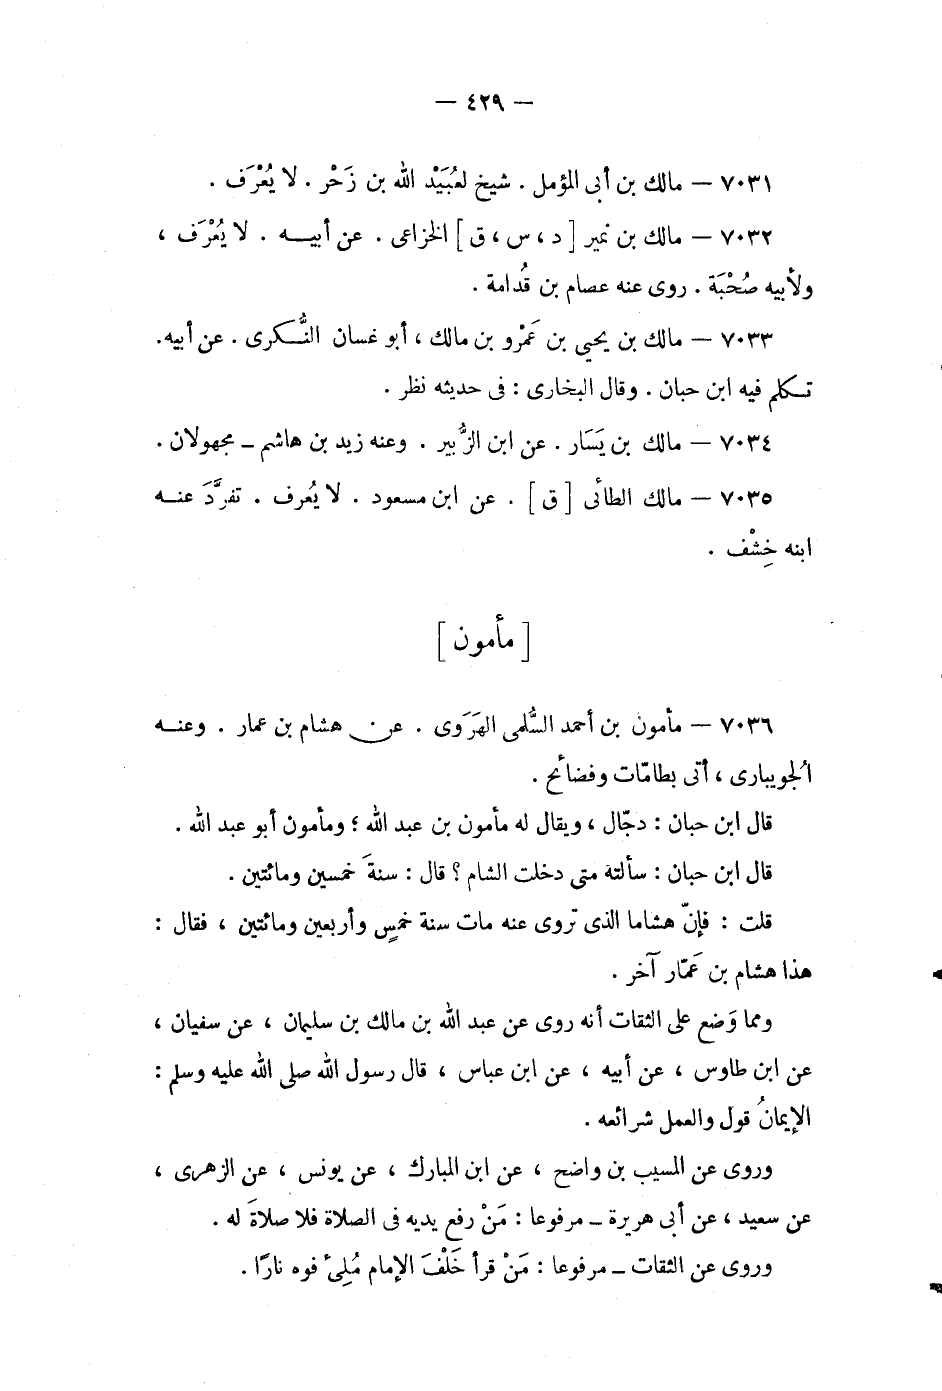 — ٤٢٩ —
٧٠٣١ — مالك بن أبى المؤمل . شيخ لعُبَيْد الله بن زَحْر . لا يُعْرَف .
٧٠٣٢ — مالك بن نمير [ د ، س ، ق ] الخزاعى . عن أبيـــه . لا يُعْرَف ،
ولأبيه صُحْبَة . روى عنه عصام بن قُدامة .
٧٠٣٣ — مالك بن يحيى بن عَمْرو بن مالك ، أبو غسان النُّـكرى . عن أبيه.
تـكلم فيه ابن حبان . وقال البخارى : فى حديثه نظر .
٧٠٣٤ — مالك بن يَسَار . عن ابن الزُّبير . وعنه زيد بن هاشم ـ مجهولان .
٧٠٣٥ — مالك الطائى [ ق ] . عن ابن مسعود . لا يُعرف . تفرَّدَ عنــه
ابنه خِشْف .
[ مأمون ]
٧٠٣٦ — مأمون بن أحمد السُّلمى الهَرَوى . عن هشام بن عمار . وعنــه
الُجويبارى ، أتى بطامّات وفضائح .
قال ابن حبان : دجّال ، ويقال له مأمون بن عبد الله ؛ ومأمون أبو عبد الله .
قال ابن حبان : سألته متى دخلت الشام ؟ قال : سنةَ خمسين ومائتين .
قلت : فإنّ هشاما الذى تروى عنه مات سنة خمسٍ وأربعين ومائتين ، فقال :
هذا هشام بن عَمّار آخر .
ومما وَضع على الثقات أنه روى عن عبد الله بن مالك بن سليمان ، عن سفيان ،
عن ابن طاوس ، عن أبيه ، عن ابن عباس ، قال رسول الله صلى الله عليه وسلم :
الإيمانُ قول والعمل شرائعه .
وروى عن المسيب بن واضح ، عن ابن المبارك ، عن يونس ، عن الزهرى ،
عن سعيد ، عن أبى هريرة ـ مرفوعا : مَنْ رفع يديه فى الصلاة فلا صلاةَ له .
وروى عن الثقات ـ مرفوعا : مَنْ قرأ خَلْفَ الإمام مُلِئ فوه نارًا .